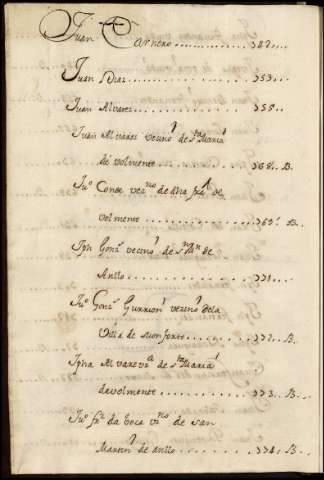 Juan Carnero . . . . . . . . . 342 . . .
Juan Diaz . . . . . . . . . . . 353 . . .
Juan Alvarez . . . . . . . . . 355 . .
Juan Alvarez vecino de Sta Maria
de volmente . . . . . . . . . 368 . B.
Juo Conde vezno de dha fra de
volmente . . . . . . . . . . 369 . B.
Jph Gonz vecino de Sn Mn de
Anllo . . . . . . . . . . . 371 . .
Juo Gonz Guxxion vezino dela
Villa de . . . . . . . . . 372 . B.
Jpha Alvarez va de Sta Maria
devolmente . . . . . . . . 373 . B.
Juo frz da boca vzno de San
Martin de anllo . . . . . . 374 . B.